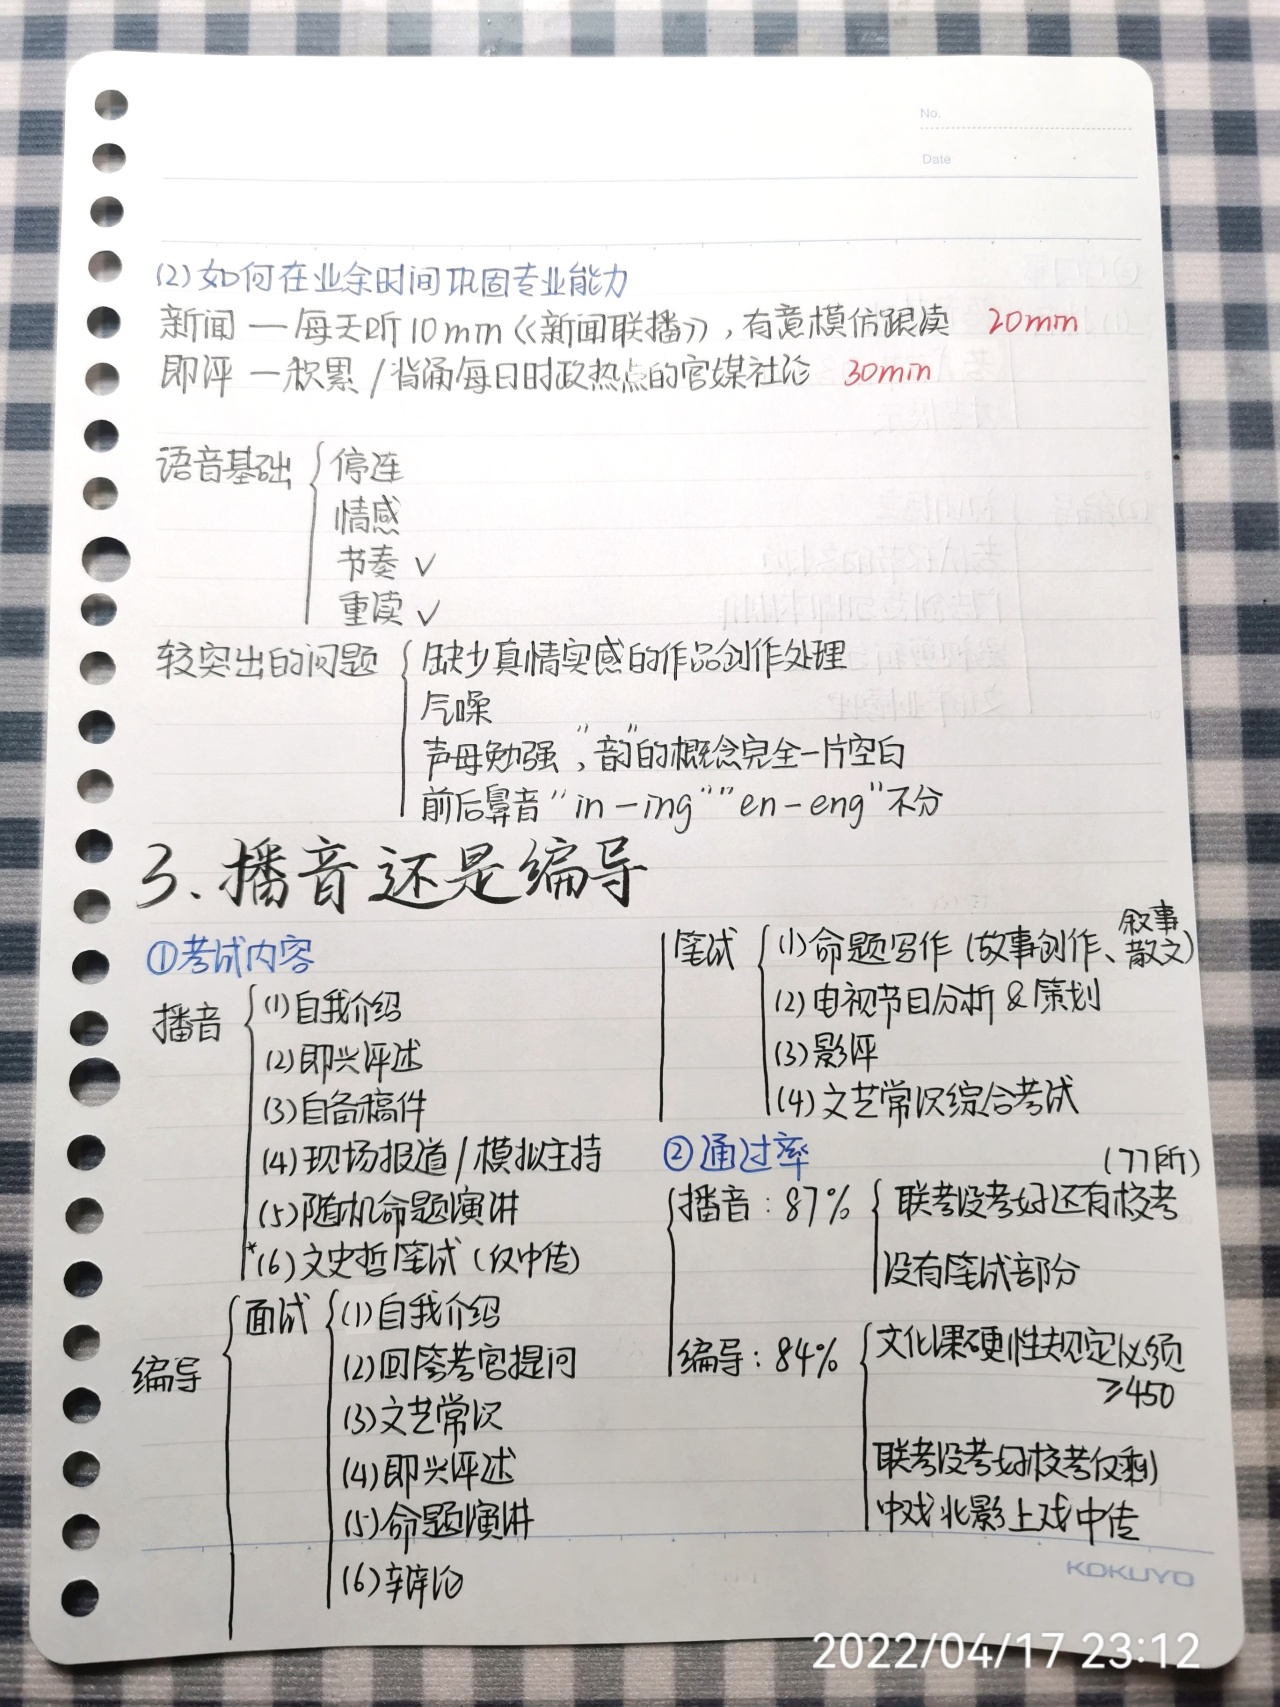 No.
Date
(2)如何在业余时间巩固专业能力
新闻 — 每天听10min《新闻联播》,有意模仿跟读 20min
即评 — 积累/背诵每日时政热点的官媒社论 30min
语音基础
停连
情感
节奏 √
重读 √
较突出的问题
缺少真情实感的作品创作处理
气噪
声母勉强,"韵"的概念完全一片空白
前后鼻音"in-ing""en-eng"不分
3.播音还是编导
①考试内容
播音
(1)自我介绍
(2)即兴评述
(3)自备稿件
(4)现场报道/模拟主持
(5)随机命题演讲
*(6)文史哲笔试(仅中传)
编导
面试
(1)自我介绍
(2)回答考官提问
(3)文艺常识
(4)即兴评述
(5)命题演讲
(6)辩论
笔试
(1)命题写作(故事创作、叙事散文)
(2)电视节目分析&策划
(3)影评
(4)文艺常识综合考试
②通过率
(77所)
播音:87%
联考没考好还有校考
没有笔试部分
编导:84%
文化课硬性规定必须
≥450
联考没考好校考仅剩
中戏北影上戏中传
KOKUYO
2022/04/17 23:12